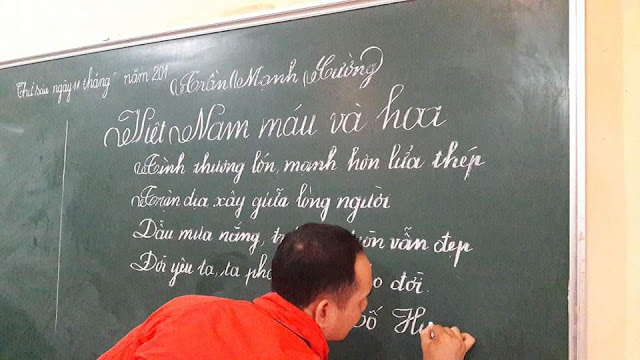 Thứ sáu ngày 11 tháng năm 201 Trần Mạnh Hường
Việt Nam máu và hoa
Tình thương lớn, mạnh hơn lửa thép
Trận địa xây giữa lòng người
Dầu mưa nắng, vẫn đẹp
Đời yêu ta, ta đời.